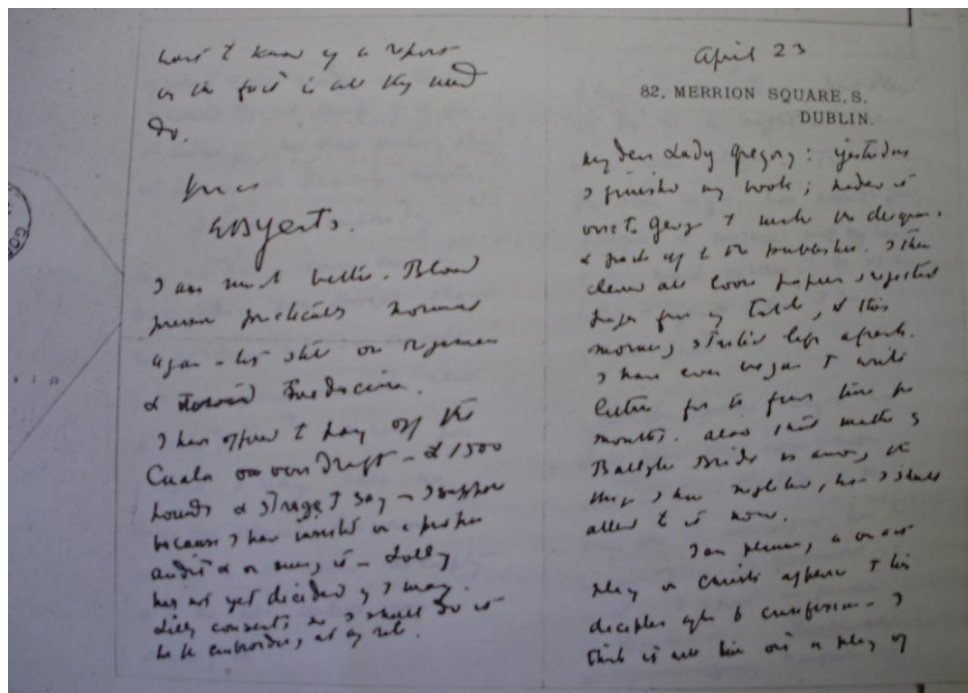 want to know if a report
on the first is all they need
do.
Yours
WBYeats.
I am much better. Blood
pressure practically normal
again – but still on regimen
&
I have offered to pay off the
Cuala overdraft – £1500
sounds & strange to say – I suppose
because I have insisted on a proper
audit & on it – Lolly
has not yet decided if I may.
Lilly consents so I shall do it
for the embroidery, at any rate.
April 23
82, MERRION SQUARE, S.
DUBLIN.
My dear Lady Gregory: yesterday
I finished my book; it
George to make the
& pack up to the publisher. I then
cleared all loose papers & rejected
pages from my table, & this
morning I started life afresh.
I have even began to write
letters for the first time for
months. Alas, that matter of
Ballylee is among the
things I have neglected, but I shall
attend to it now.
I am planning, a
play on Christs appearance to his
disciples after the crucifixion – I
think it will turn into a play of